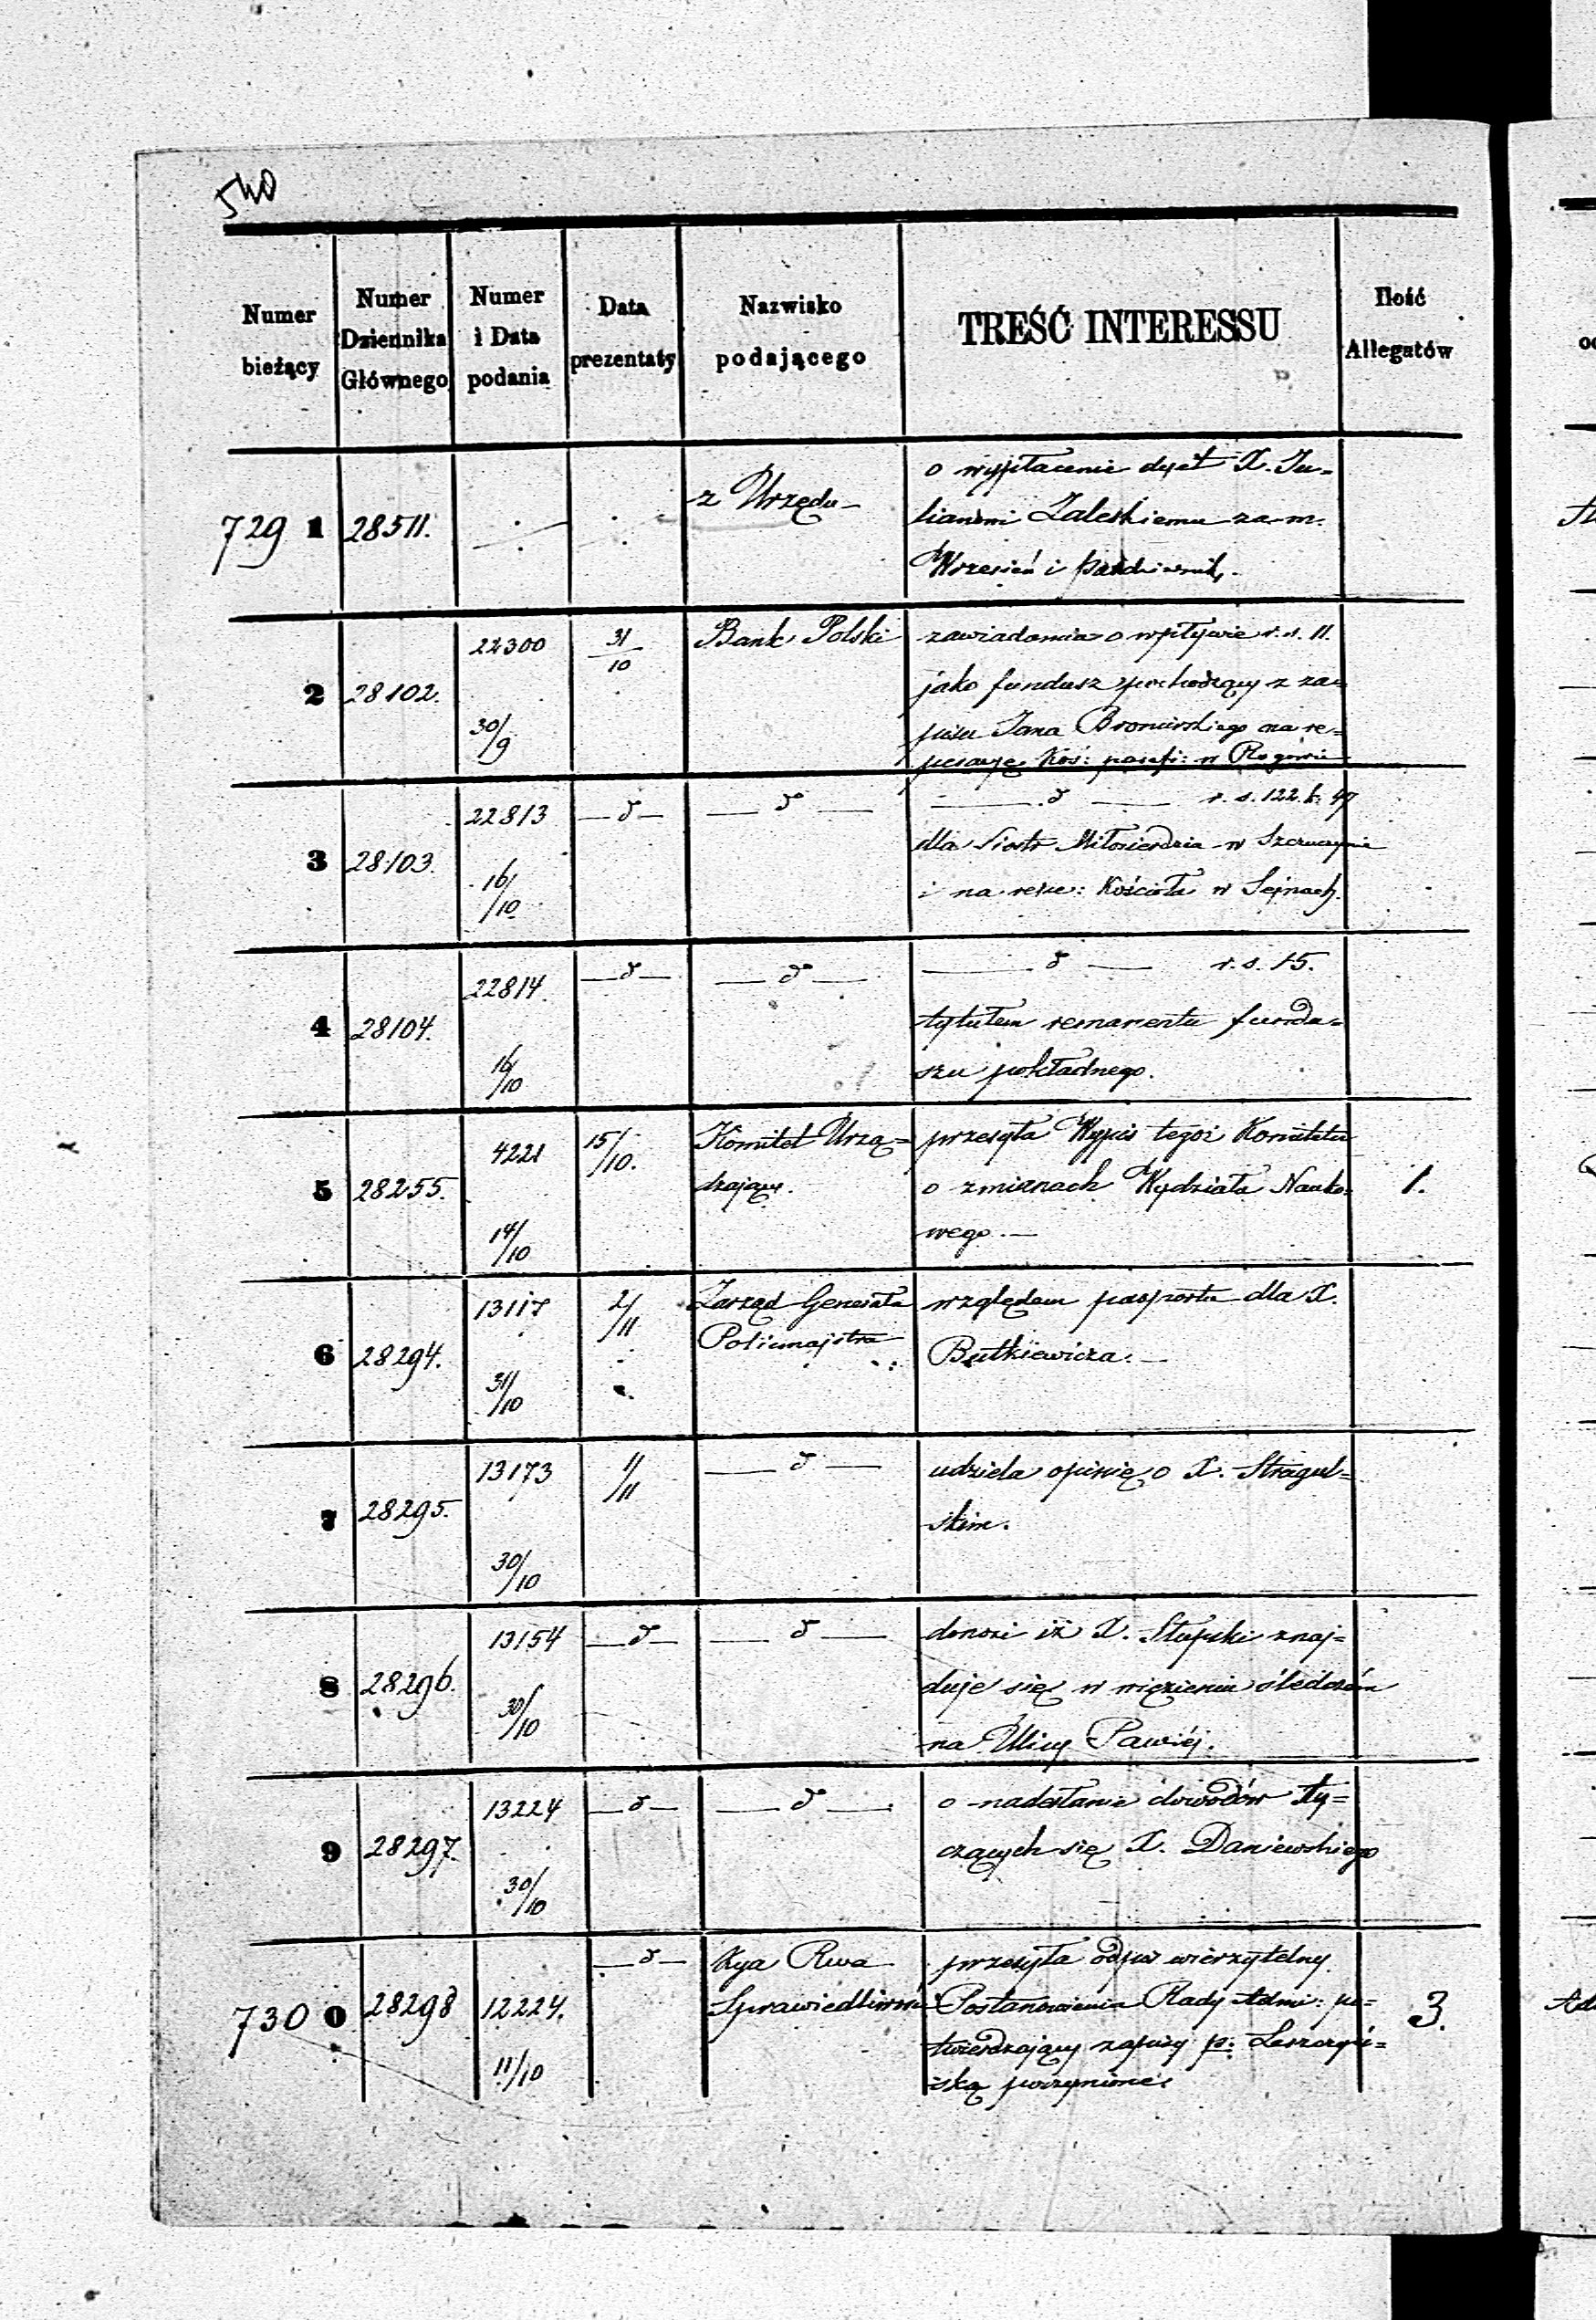 540
Numer bieżący
Numer Dziennika Głównego
Numer i Data podania
Data prezentaty
Nazwisko podającego
TREŚĆ INTERESSU
Ilość Allegatów
729 1
28511.
z Urzędu
o wypłacenie dyet X. Ju=
lianowi Zaleskiemu za m.
Wrzesień i Październik.
2
28102.
22300
30/9
31/10
Bank Polski
zawiadamia o wpływie r. s. 11.
jako fundusz pochodzący z za=
pisu Jana na re=
peracyę Koś: parafi: w Rogowie
3
28103.
22813
16/10
— d° —
— d° —
— d° — r. s. 122. k. 47
dla Siostr Miłosierdzia w Szczuczynie
i na Kościoła w Sejnach.
4
28104.
22814.
16/10
— d° —
— d° —
— d° — r. s. 15.
tytułem remanentu fundu=
szu pokładnego.
5
28255.
4221
14/10
15/10.
Komitet Urzą=
dzający.
przesyła Wypis tegoż Komitetu
o zmianach Wydziału Nauko=
wego. —
1.
6
28294.
13117
31/10
2/11
Zarząd Generała
Policmajstra
względem pasportu dla X.
Butkiewicza. —
7
28295.
13173
30/10
1/11
— d° —
udziela opinię o X. Stragul=
skim.
8
28296.
13154
30/10
— d° —
— d° —
donosi iż X. Słupski znaj=
duje się w więzieniu śledczém
na Ulicy Pawiéj.
9
28297.
13224
30/10
— d° —
— d° —
o nadesłanie dowodów ty=
czących się X. Daniewskiego
730 0
28298
12224.
11/10
— d° —
Kya Rwa
Sprawiedliwości
przesyła odpis wierzytelny
Postanowienia Rady Admi: po=
twierdzający zapisy p:
ską poczynione.
3.